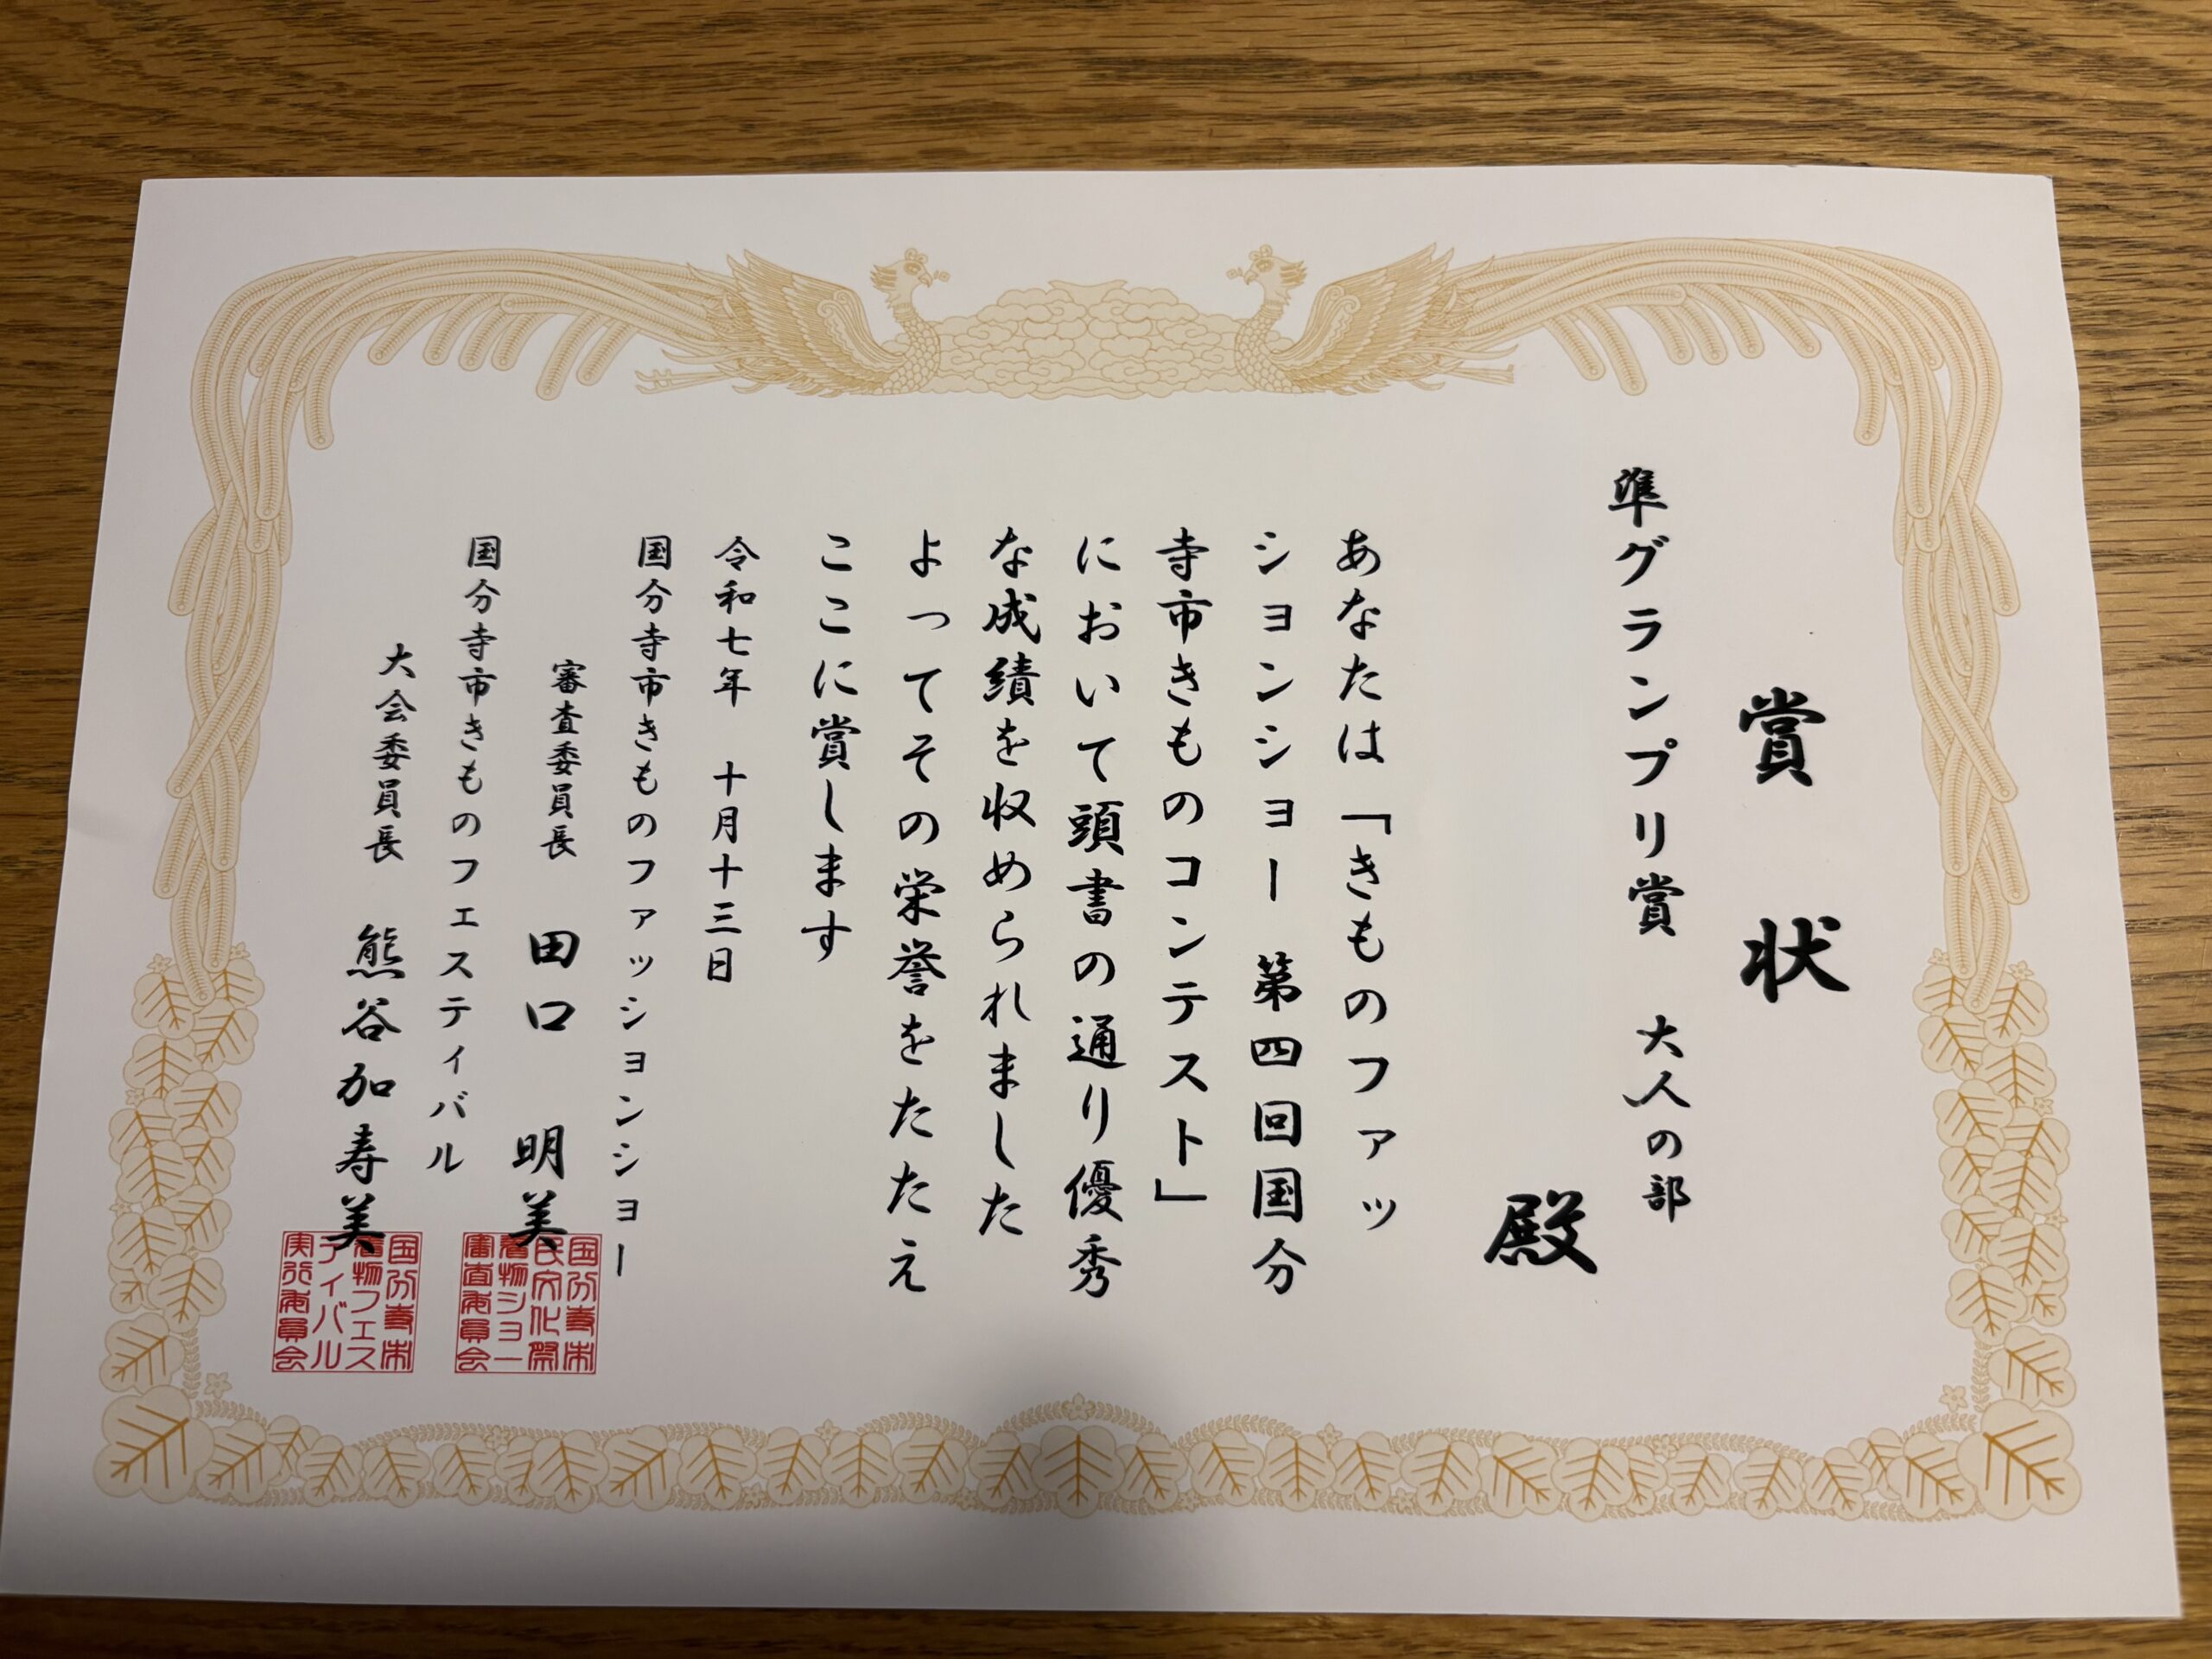 賞状
準グランプリ賞 大人の部
殿
あなたは「きものファッ
ションショー 第四回国分
寺市きものコンテスト」
において頭書の通り優秀
な成績を収められました
よってその栄誉をたたえ
ここに賞します
令和七年 十月十三日
国分寺市きものファッションショー
審査委員長 田口 明美
国分寺市きものフェスティバル
大会委員長 熊谷加寿美
国分寺市
民文化祭
着物ショー
審査委員会
国分寺市
着物フェス
ティバル
実行委員会